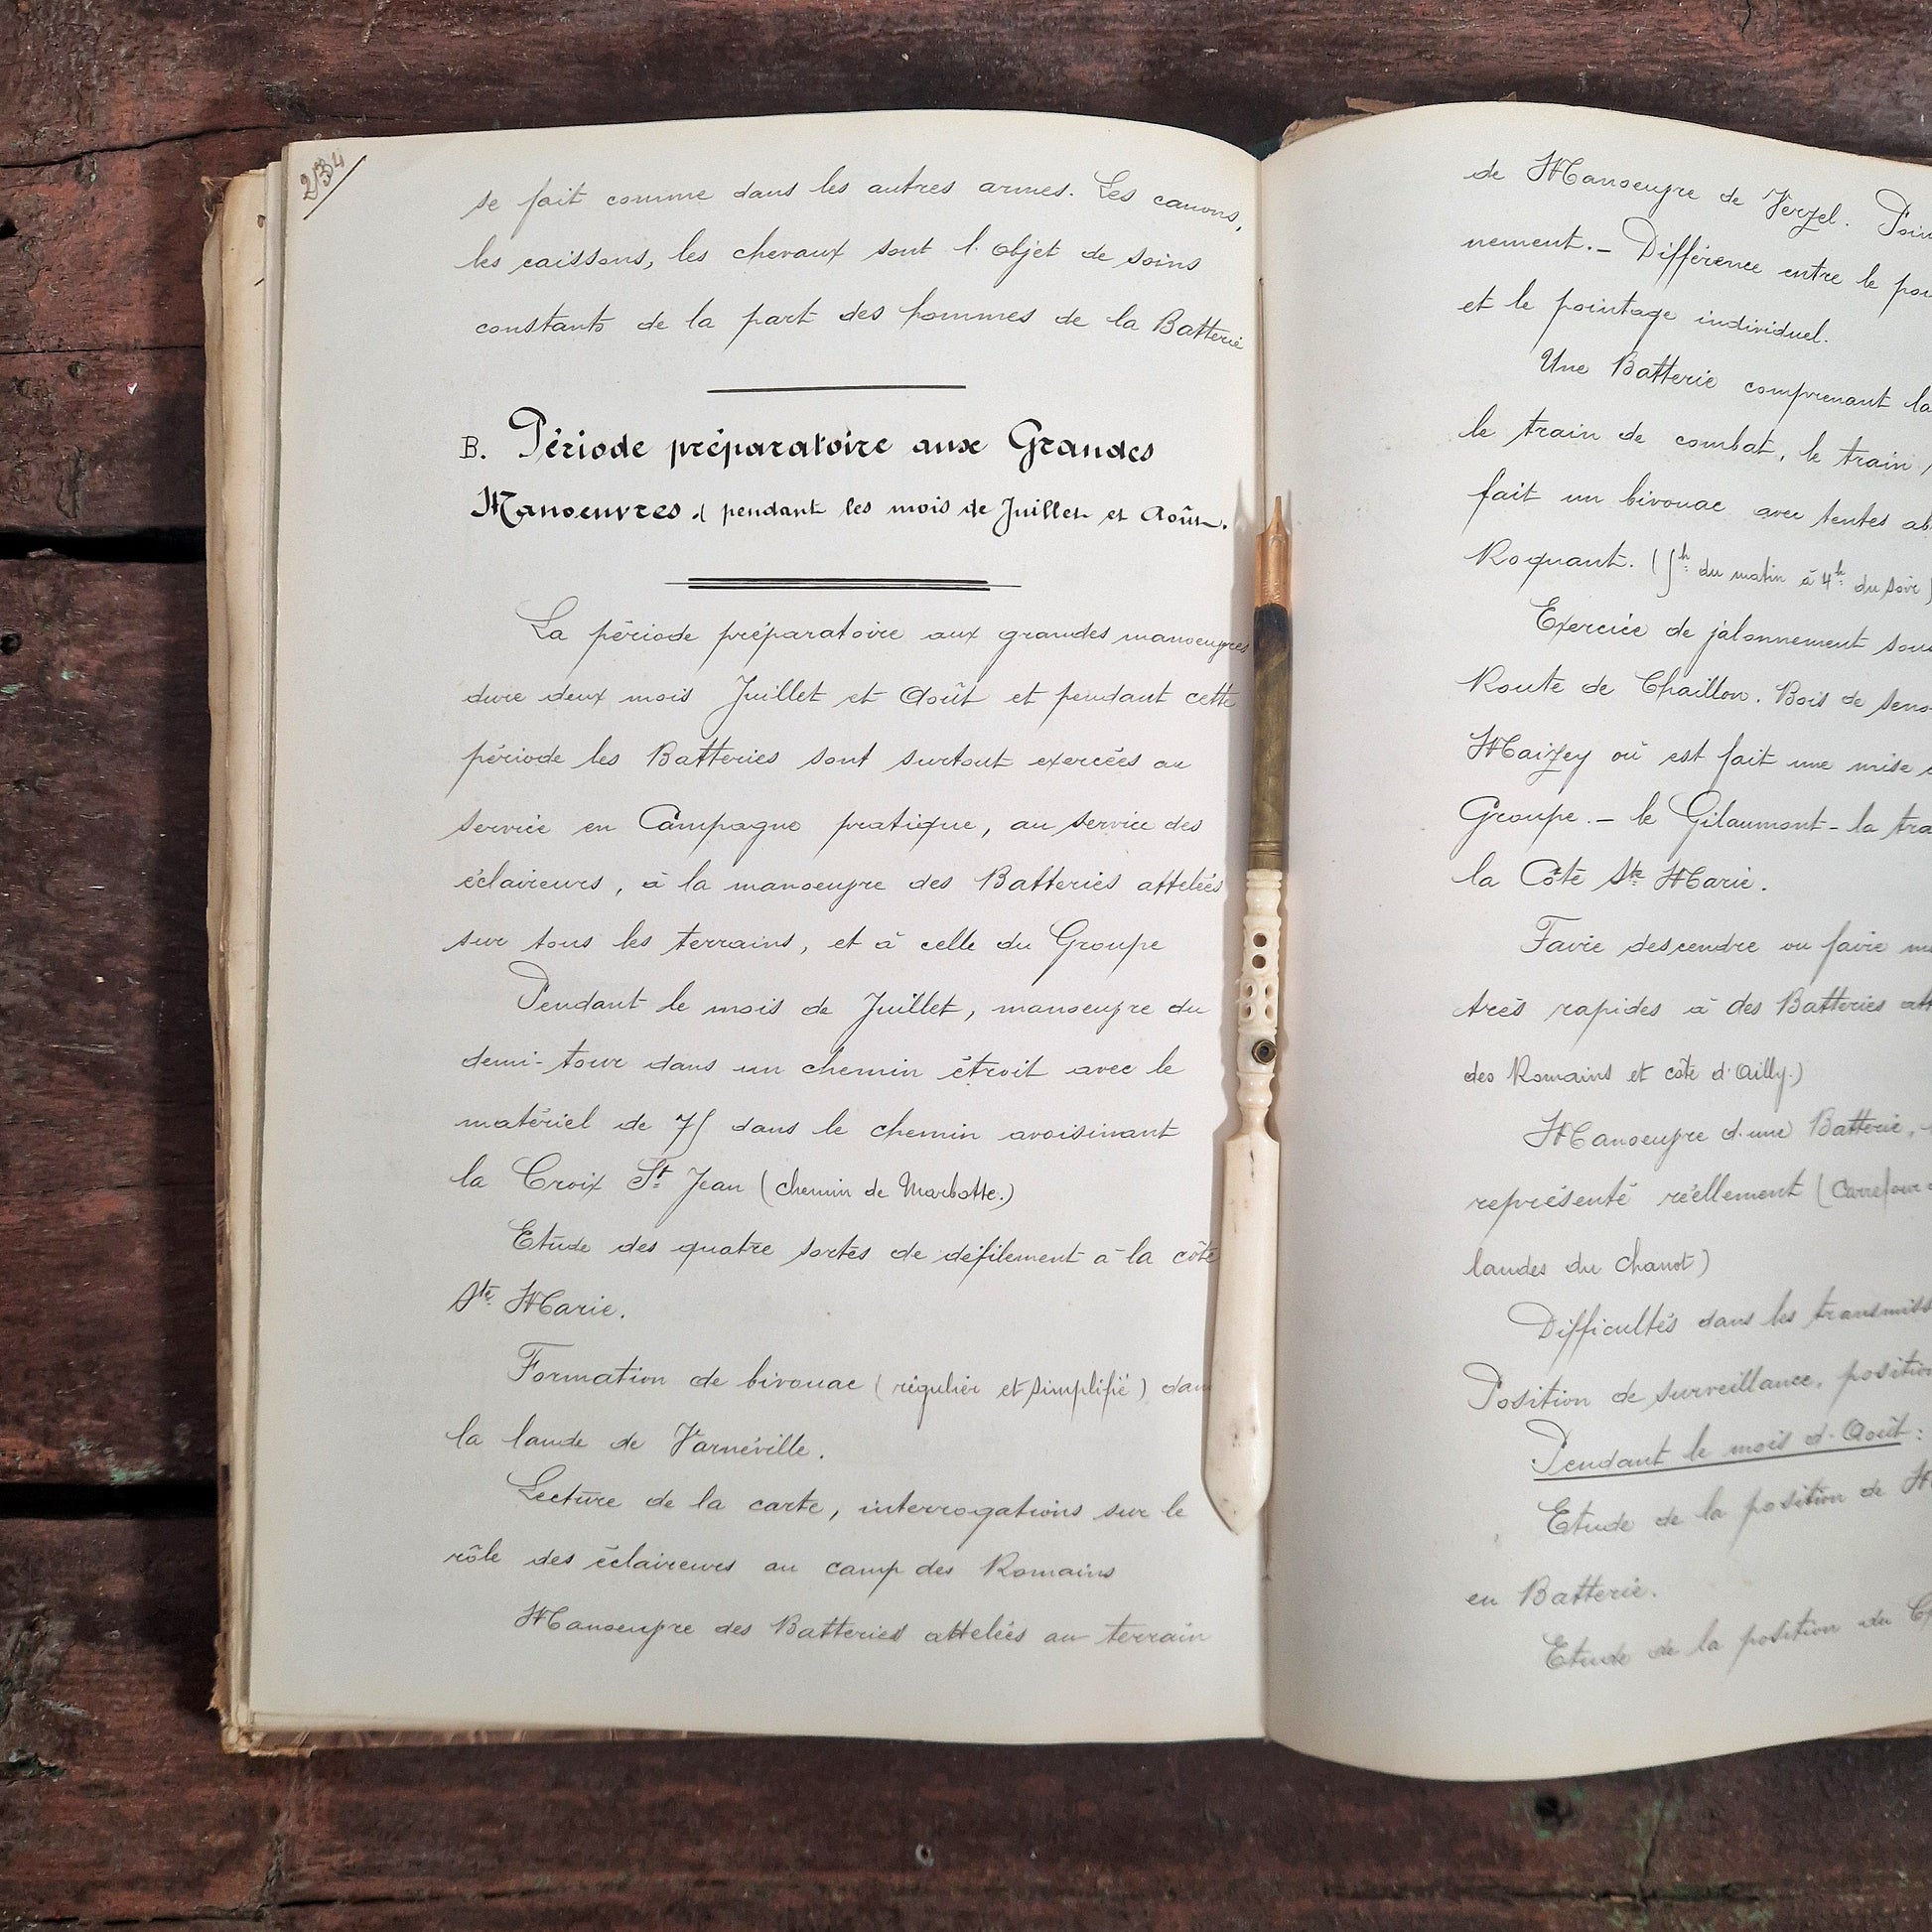 234
se fait comme dans les autres armes. Les canons,
les caissons, les chevaux sont l'objet de soins
constants de la part des hommes de la Batterie
B. Période préparatoire aux Grandes
Manoeuvres. ( pendant les mois de Juillet et Août.
La période préparatoire aux grandes manoeuvres
dure deux mois Juillet et Août et pendant cette
période les Batteries sont surtout exercées au
service en Campagne pratique, au service des
éclaireurs, à la manoeuvre des Batteries attelées
sur tous les terrains, et à celle du Groupe
Pendant le mois de Juillet, manoeuvre du
demi-tour dans un chemin étroit avec le
matériel de 75 dans le chemin avoisinant
la Croix St Jean (chemin de Marbotte.)
Etude des quatre sortes de défilement à la côte
Ste Marie.
Formation de bivouac (régulier et simplifié) dans
la lande de Varnéville.
Lecture de la carte, interrogations sur le
rôle des éclaireurs au camp des Romains
Manoeuvre des Batteries attelées au terrain
de Manoeuvre de Verzel.
nement. – Différence entre le
et le pointage individuel.
Une Batterie comprenant la
le train de combat, le train
fait un bivouac avec tentes
Roquant. (5h du matin à 4h du soir)
Exercice de jalonnement sous
Route de Chaillon. Bois de
Maizey où est fait une mise
Groupe. – le Gilaumont – la
la Côte Ste Marie.
Faire descendre ou faire
très rapides à des Batteries
des Romains et côte d'Ailly.)
Manoeuvre d'une Batterie,
représenté réellement (Carrefour
landes du chanot)
Difficultés dans les
Position de surveillance, position
Pendant le mois d'Août :
Etude de la position de
en Batterie.
Etude de la position du